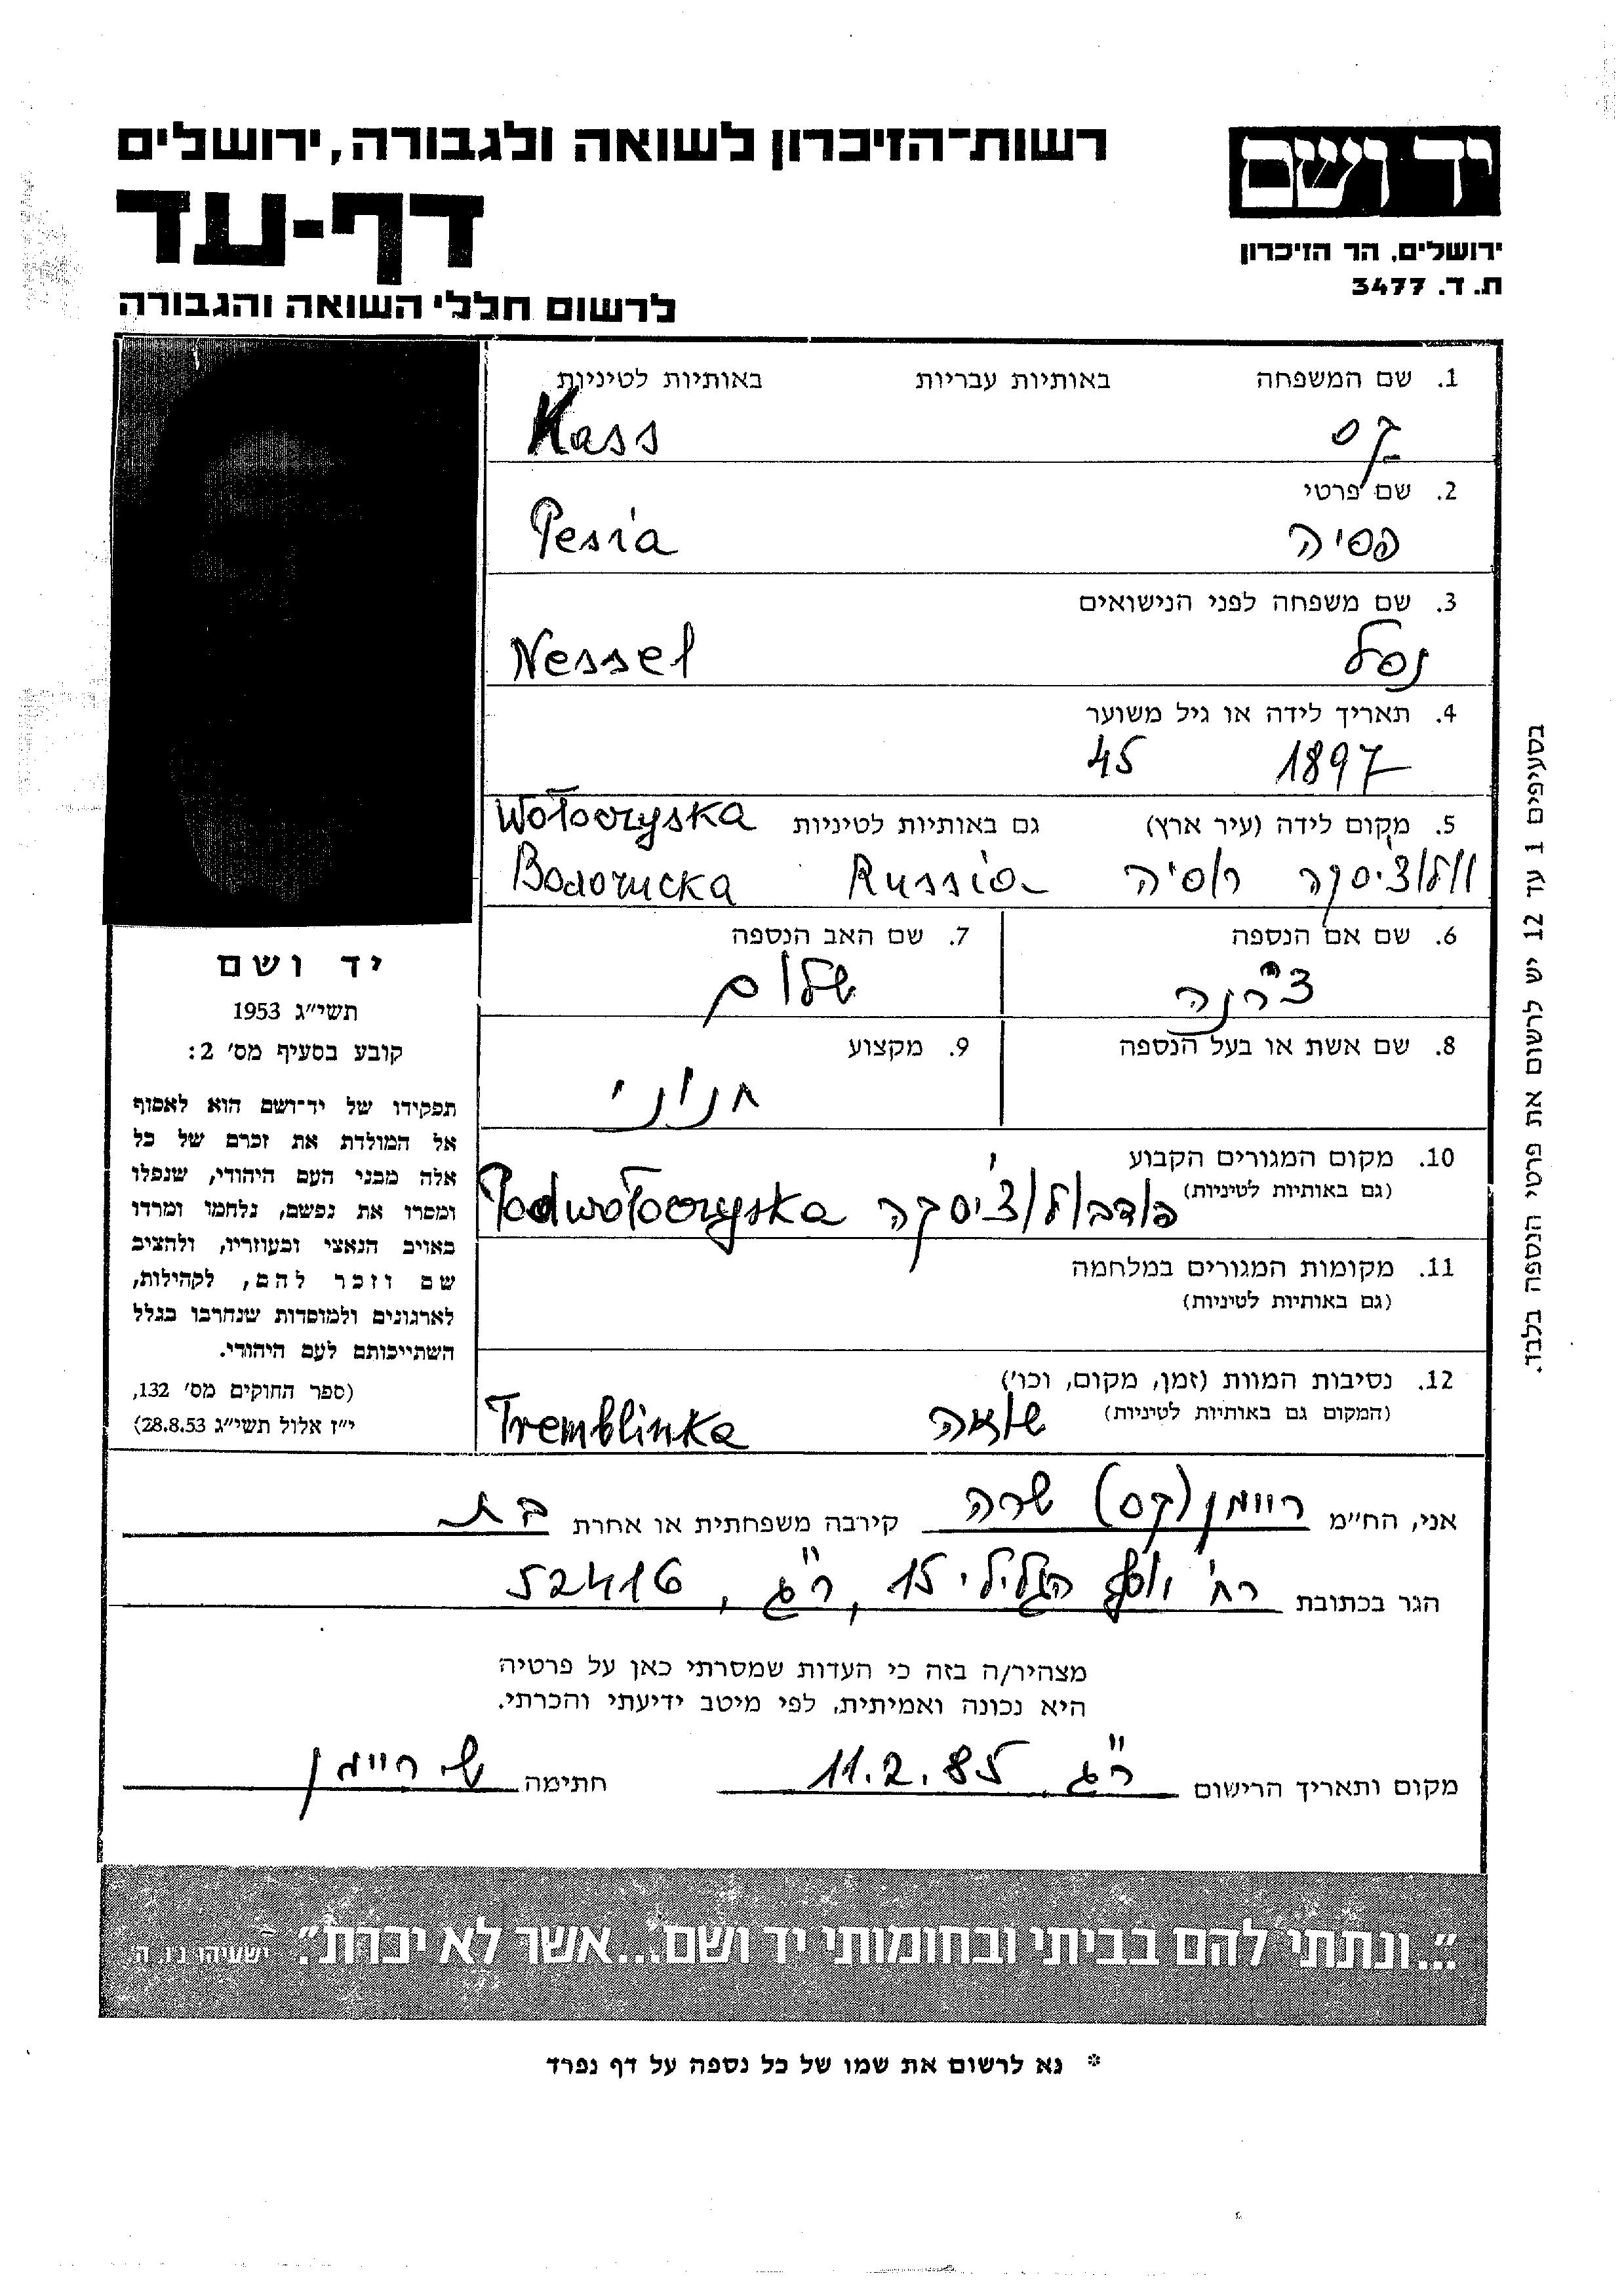 רשות-הזיכרון לשואה ולגבורה, ירושלים
יד ושם
דף-עד
ירושלים. הר הזיכרון
ת. ד. 3477
לרשום חללי השואה והגבורה
1. שם המשפחה באותיות עבריות באותיות לטיניות
קס Kass
2. שם פרטי
פסיה Pesia
3. שם משפחה לפני הנישואים
נסל Nessel
4. תאריך לידה או גיל משוער
1897 45
5. מקום לידה (עיר ארץ) גם באותיות לטיניות Wołoczyska
וולוצ'יסקה רוסיה Russia
6. שם אם הנספה 7. שם האב הנספה
שלום
8. שם אשת או בעל הנספה 9. מקצוע
חנוני
10. מקום המגורים הקבוע
(גם באותיות לטיניות)
פודבולוצ'יסקה Podwołoczyska
11. מקומות המגורים במלחמה
(גם באותיות לטיניות)
12. נסיבות המוות (זמן, מקום, וכו')
(המקום גם באותיות לטיניות)
שואה Tremblinka
יד ושם
תשי"ג 1953
קובע בסעיף מס' 2:
תפקידו של יד-ושם הוא לאסוף
אל המולדת את זכרם של כל
אלה מבני העם היהודי, שנפלו
ומסרו את נפשם, נלחמו ומרדו
באויב הנאצי ובעוזריו, ולהציב
שם וזכר להם, לקהילות,
לארגונים ולמוסדות שנחרבו בגלל
השתייכותם לעם היהודי.
(ספר החוקים מס' 132,
י"ז אלול תשי"ג 28.8.53)
בסעיפים 1 עד 12 יש לרשום את פרטי הנספה בלבד.
אני, הח"מ ריימן (קס) שרה קירבה משפחתית או אחרת בת
הגר בכתובת רח' יוסף הגלילי 15, ר"ג, 52416
מצהיר/ה בזה כי העדות שמסרתי כאן על פרטיה
היא נכונה ואמיתית, לפי מיטב ידיעתי והכרתי.
מקום ותאריך הרישום ר"ג 11.2.85 חתימה ש. ריימן
"...ונתתי להם בביתי ובחומותי יד ושם...אשר לא יכרת". ישעיהו נ"ו, ה'
* נא לרשום את שמו של כל נספה על דף נפרד